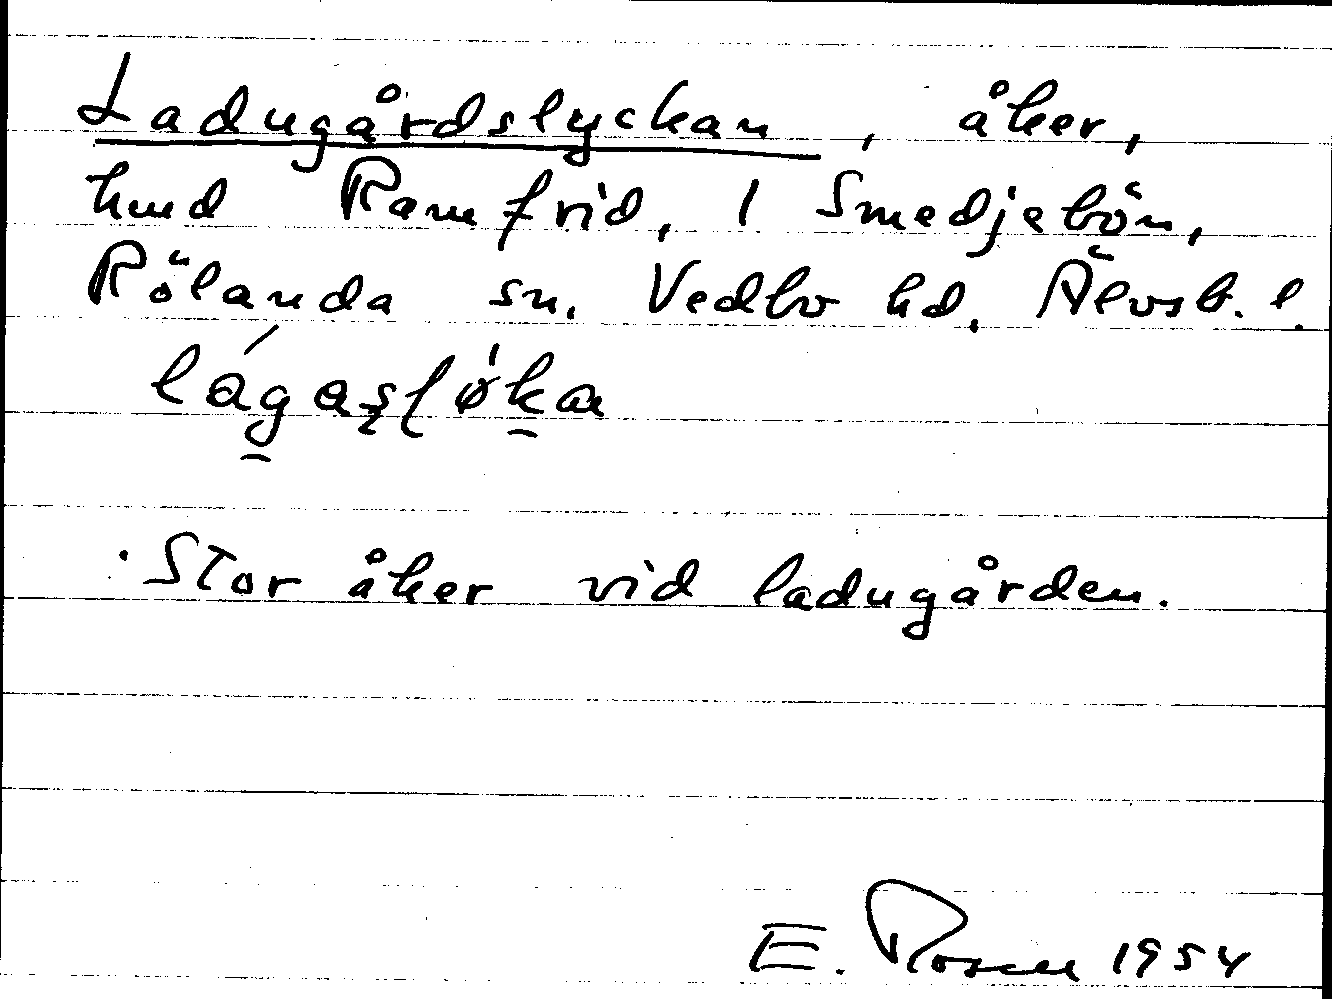 Ladugårdslyckan, åker,
hmd Ramfrid, 1 Smedjebön,
Rölanda sn. Vedbo hd. Älvsb. l.
Stor åker vid ladugården.
E. Rosen 1954